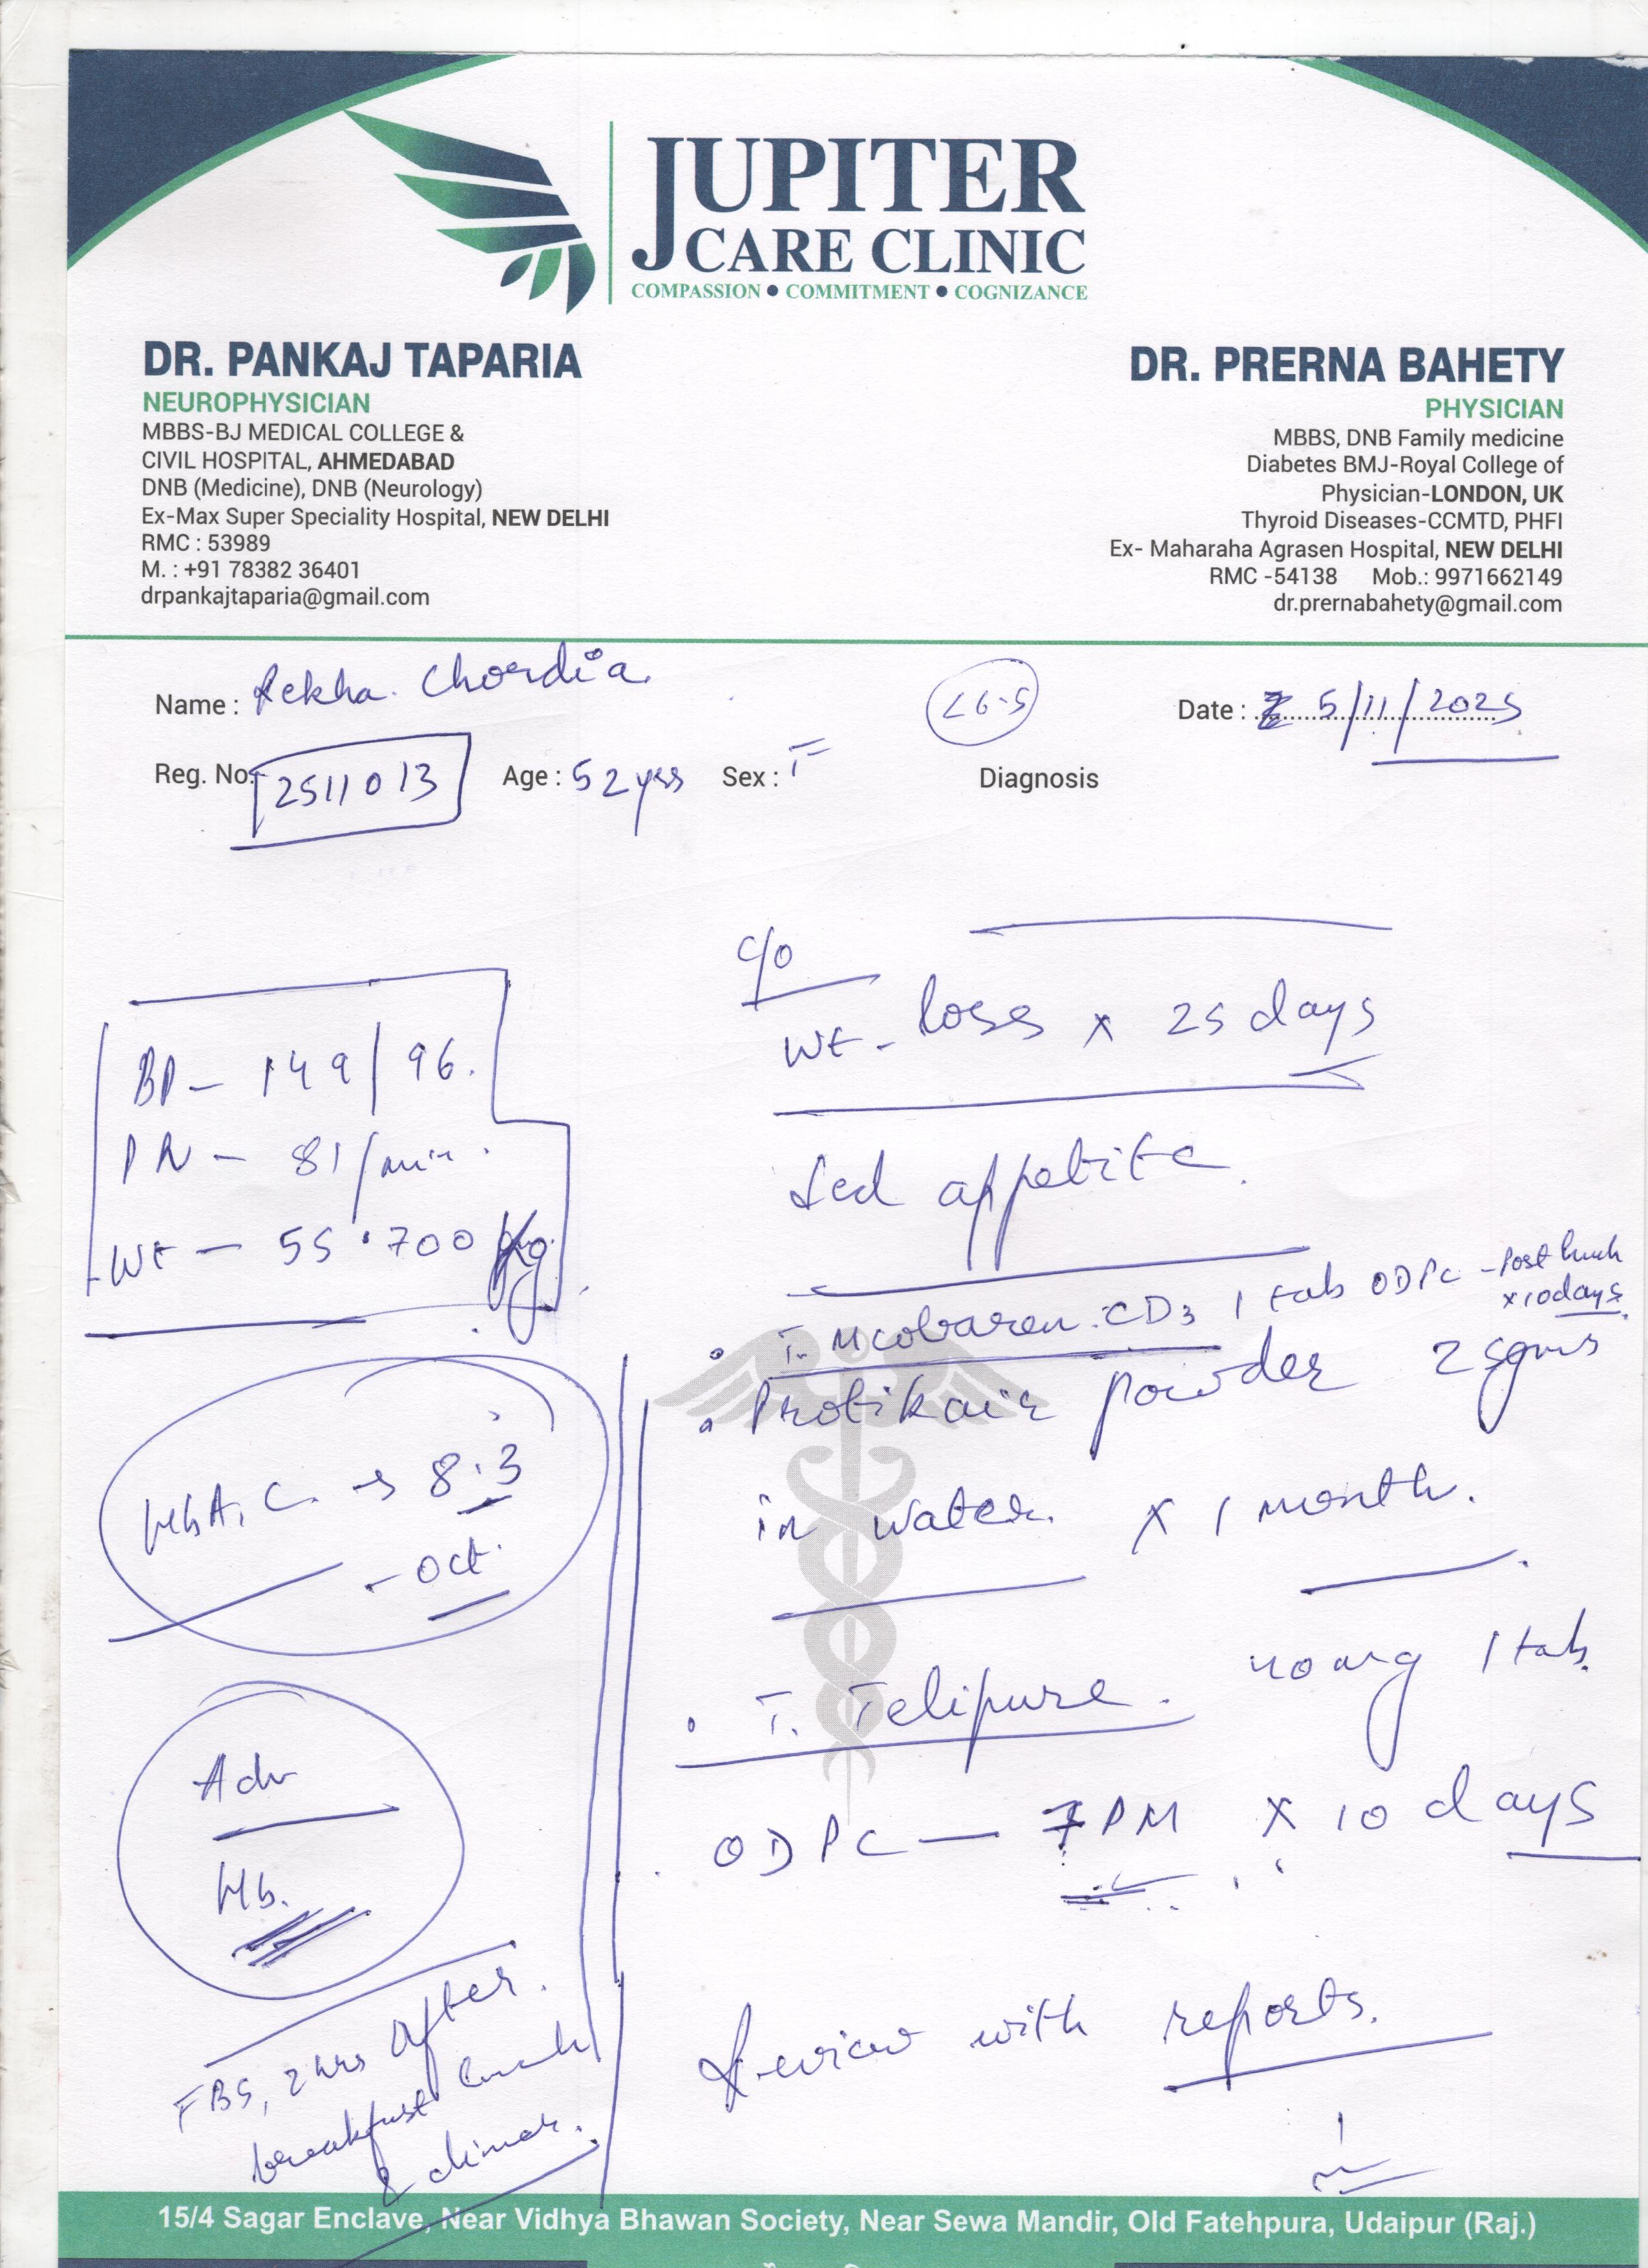 JUPITER
CARE CLINIC
COMPASSION • COMMITMENT • COGNIZANCE
DR. PANKAJ TAPARIA
NEUROPHYSICIAN
MBBS-BJ MEDICAL COLLEGE &
CIVIL HOSPITAL, AHMEDABAD
DNB (Medicine), DNB (Neurology)
Ex-Max Super Speciality Hospital, NEW DELHI
RMC : 53989
M. : +91 78382 36401
drpankajtaparia@gmail.com
DR. PRERNA BAHETY
PHYSICIAN
MBBS, DNB Family medicine
Diabetes BMJ-Royal College of
Physician-LONDON, UK
Thyroid Diseases-CCMTD, PHFI
Ex- Maharaha Agrasen Hospital, NEW DELHI
RMC -54138 Mob.: 9971662149
dr.prernabahety@gmail.com
Name : Rekha Chordia
<6.5
Date : 5/11/2025
Reg. No. 2511013 Age : 52 yrs Sex : F Diagnosis
BP - 149/96.
PR - 81/min.
Wt - 55.700 kg.
HbA1C → 8.3
- Oct.
Adv
Hb.
FBS, 2 hrs after
breakfast lunch
& dinner.
c/o
wt - loss x 25 days
↓ed appetite.
• T. Mcobaren CD3 1 tab ODPC - Post lunch
x 10 days.
• Protikair powder 2 sgms
in water. x 1 month.
• T. Telipure. 40 mg 1 tab.
ODPC — 7 PM x 10 days
Review with reports.
15/4 Sagar Enclave, Near Vidhya Bhawan Society, Near Sewa Mandir, Old Fatehpura, Udaipur (Raj.)